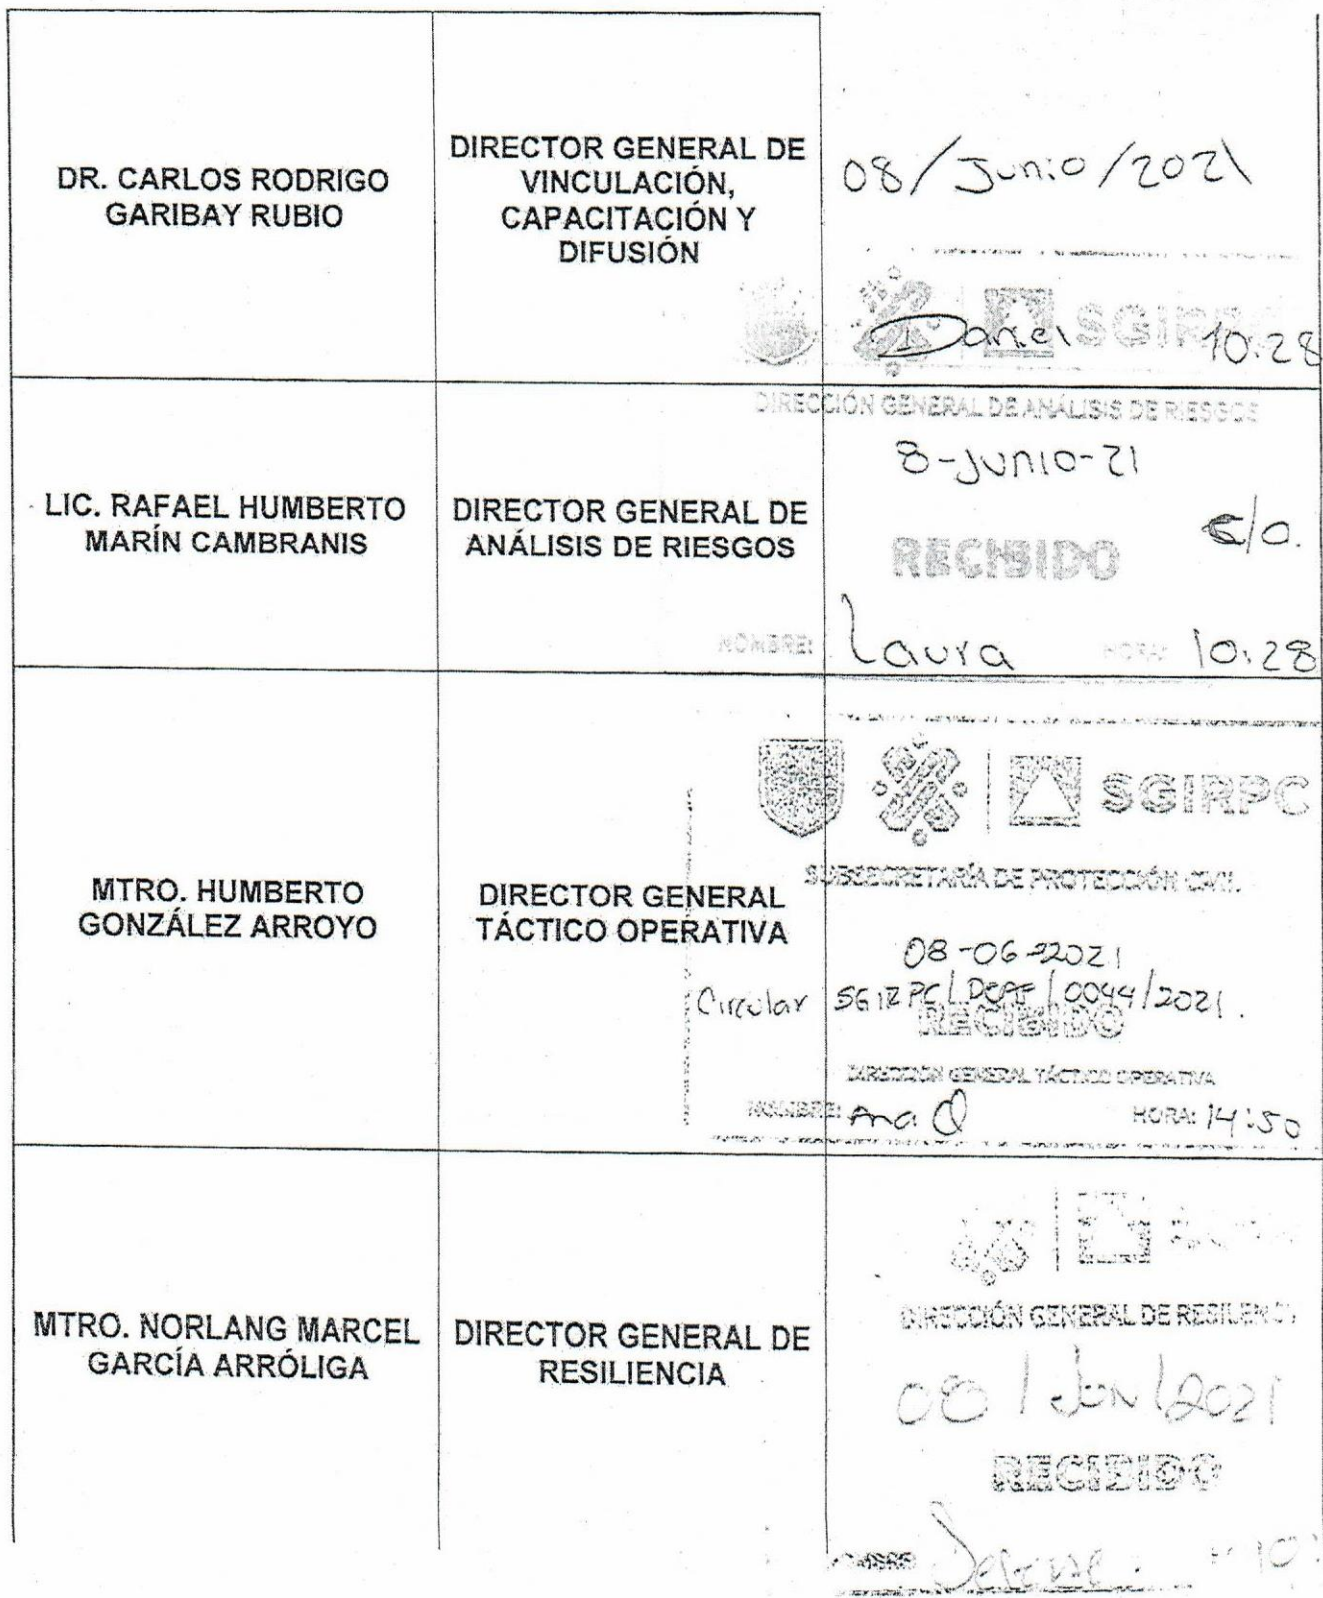 DR. CARLOS RODRIGO
GARIBAY RUBIO
DIRECTOR GENERAL DE
VINCULACIÓN,
CAPACITACIÓN Y
DIFUSIÓN
08/Junio/2021
SGIRPC
Daniel 10:28
LIC. RAFAEL HUMBERTO
MARÍN CAMBRANIS
DIRECTOR GENERAL DE
ANÁLISIS DE RIESGOS
DIRECCIÓN GENERAL DE ANÁLISIS DE RIESGOS
8-JUNIO-21
RECIBIDO
NOMBRE: Laura HORA: 10:28
MTRO. HUMBERTO
GONZÁLEZ ARROYO
DIRECTOR GENERAL
TÁCTICO OPERATIVA
SGIRPC
SUBSECRETARÍA DE PROTECCIÓN CIVIL
08-06-2021
Circular SGIRPC/DEAF/0044/2021.
RECIBIDO
DIRECCIÓN GENERAL TÁCTICO OPERATIVA
NOMBRE: Ana HORA: 14:50
MTRO. NORLANG MARCEL
GARCÍA ARRÓLIGA
DIRECTOR GENERAL DE
RESILIENCIA
DIRECCIÓN GENERAL DE RESILIENCI
08/Jun/2021
RECIBIDO
NOMBRE